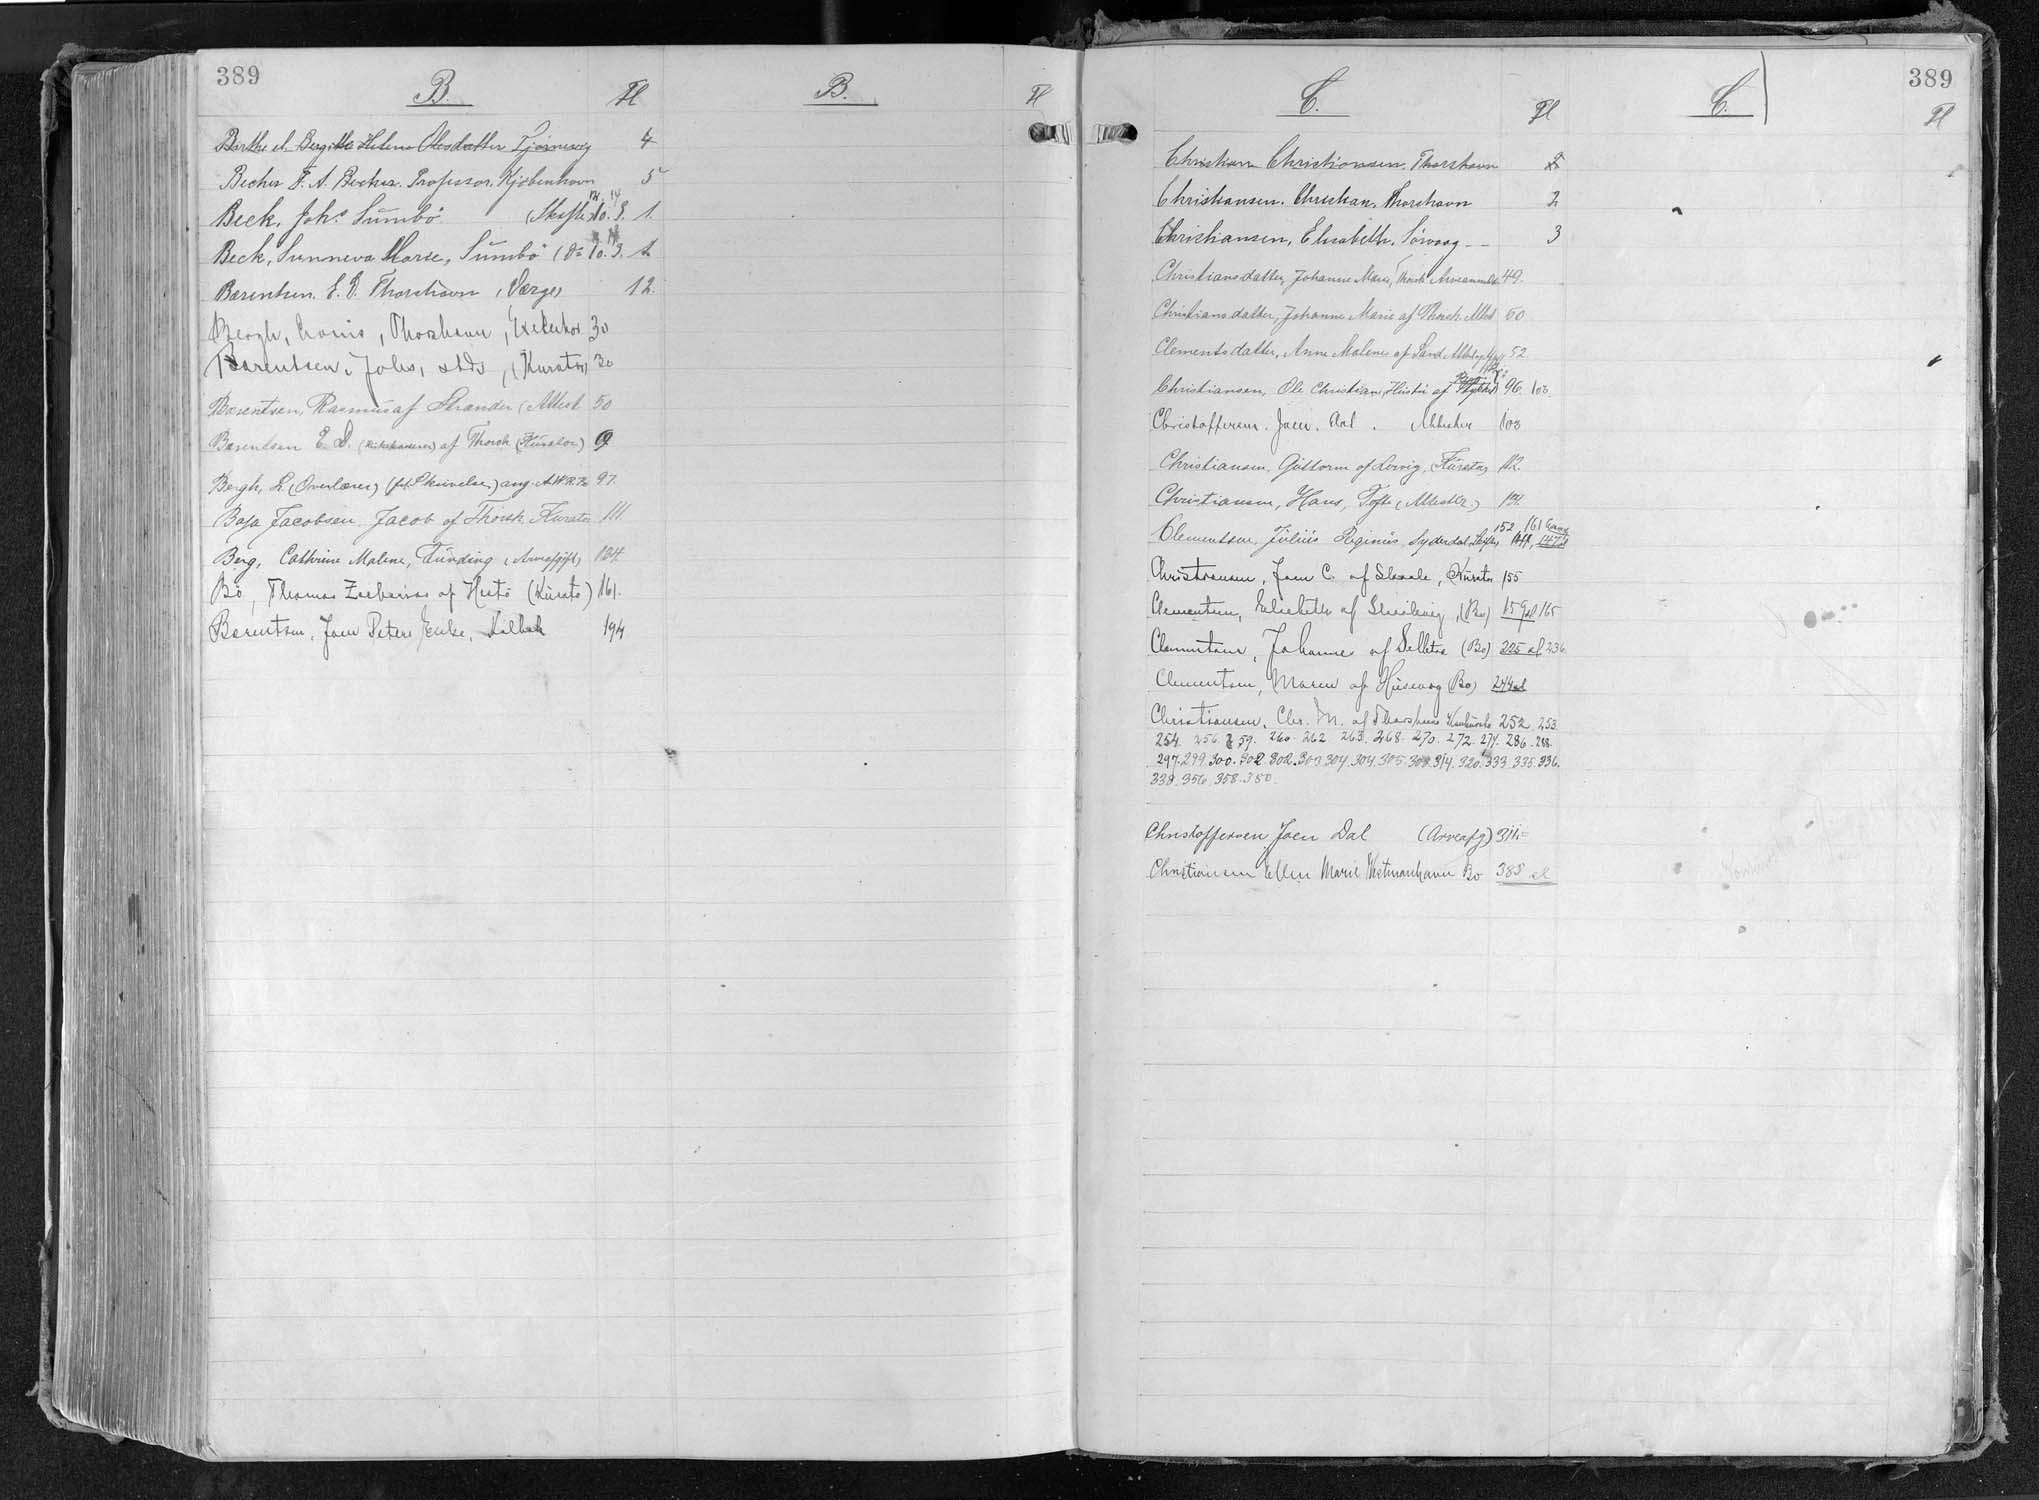 389
B. Fl B. Fl
Birthe el. Birgitte Helene Olesdatter Tjörnevig 4
Becker F. A. Becker. Professor. Kjöbenhavn 5
Beck, Johs Sumbö (Skifte) 10. 3. 1.
Beck, Sunneva Marie, Sumbö (do 10. 3. 1
Bærentsen. E. D. Thorshavn (Værge) 12.
Bergh, Louis, Thorshavn, Exekutor 30
Bærentsen, Johs, stds, (Kurator) 30
Bærentsen, Rasmus af Strænder (Attest 50
Bærentsen E. D. af Thorsh (Kurator)
Bergh, L. (Overlærer) ang. 97.
Baja Jacobsen Jacob af Thorsh. Kurator 111.
Berg, Cathrine Malene, Funding (Arveafgift) 124
Bö, Thomas Zacharias af Hestö (Kurator) 161.
Berentsen, Joen Peter 194
389
C. Fl C. Fl
Christian Christiansen. Thorshavn 2
Christiansen. Christian. Thorshavn 2
Christiansen, Elisabeth. Sörvaag 3
Christiansdatter, Johanne Marie, Thorsh 49.
Christiansdatter, Johanne Marie af Thorsh. Attest 50
Clementsdatter, Anne Malene af Sand 52.
Christiansen, Ole Christian, Hustru af 96. 103.
Christoffersen. Joen. Dal. 103
Christiansen, Guttorm af Lorvig, (Kurator) 112.
Christiansen, Hans, Tofte (Attester.)
Clementsen, Julius Reginius, Syderdal. 152 161
Christiansen, Joen C. af Skaale, Kurator 155
Clementsen, Elisabeth af (Bo) 165
Clementsen, Johannes af Selletræ (Bo) 225 sl. 236.
Clementsen, Maren af Husevaag (Bo) 244 sl
Christiansen, Chr. M. af Thorshavn 252. 253.
254. 256. 259. 260. 262 263. 268. 270. 272. 274. 286. 288.
297. 299 300. 302 302. 303 304 304. 305. 308. 314. 320. 333 335. 336.
338. 356. 358. 380.
Christoffersen Joen Dal (Arveafg)
Christiansen Ellen Marie Westmanhavn Bo 385 sl